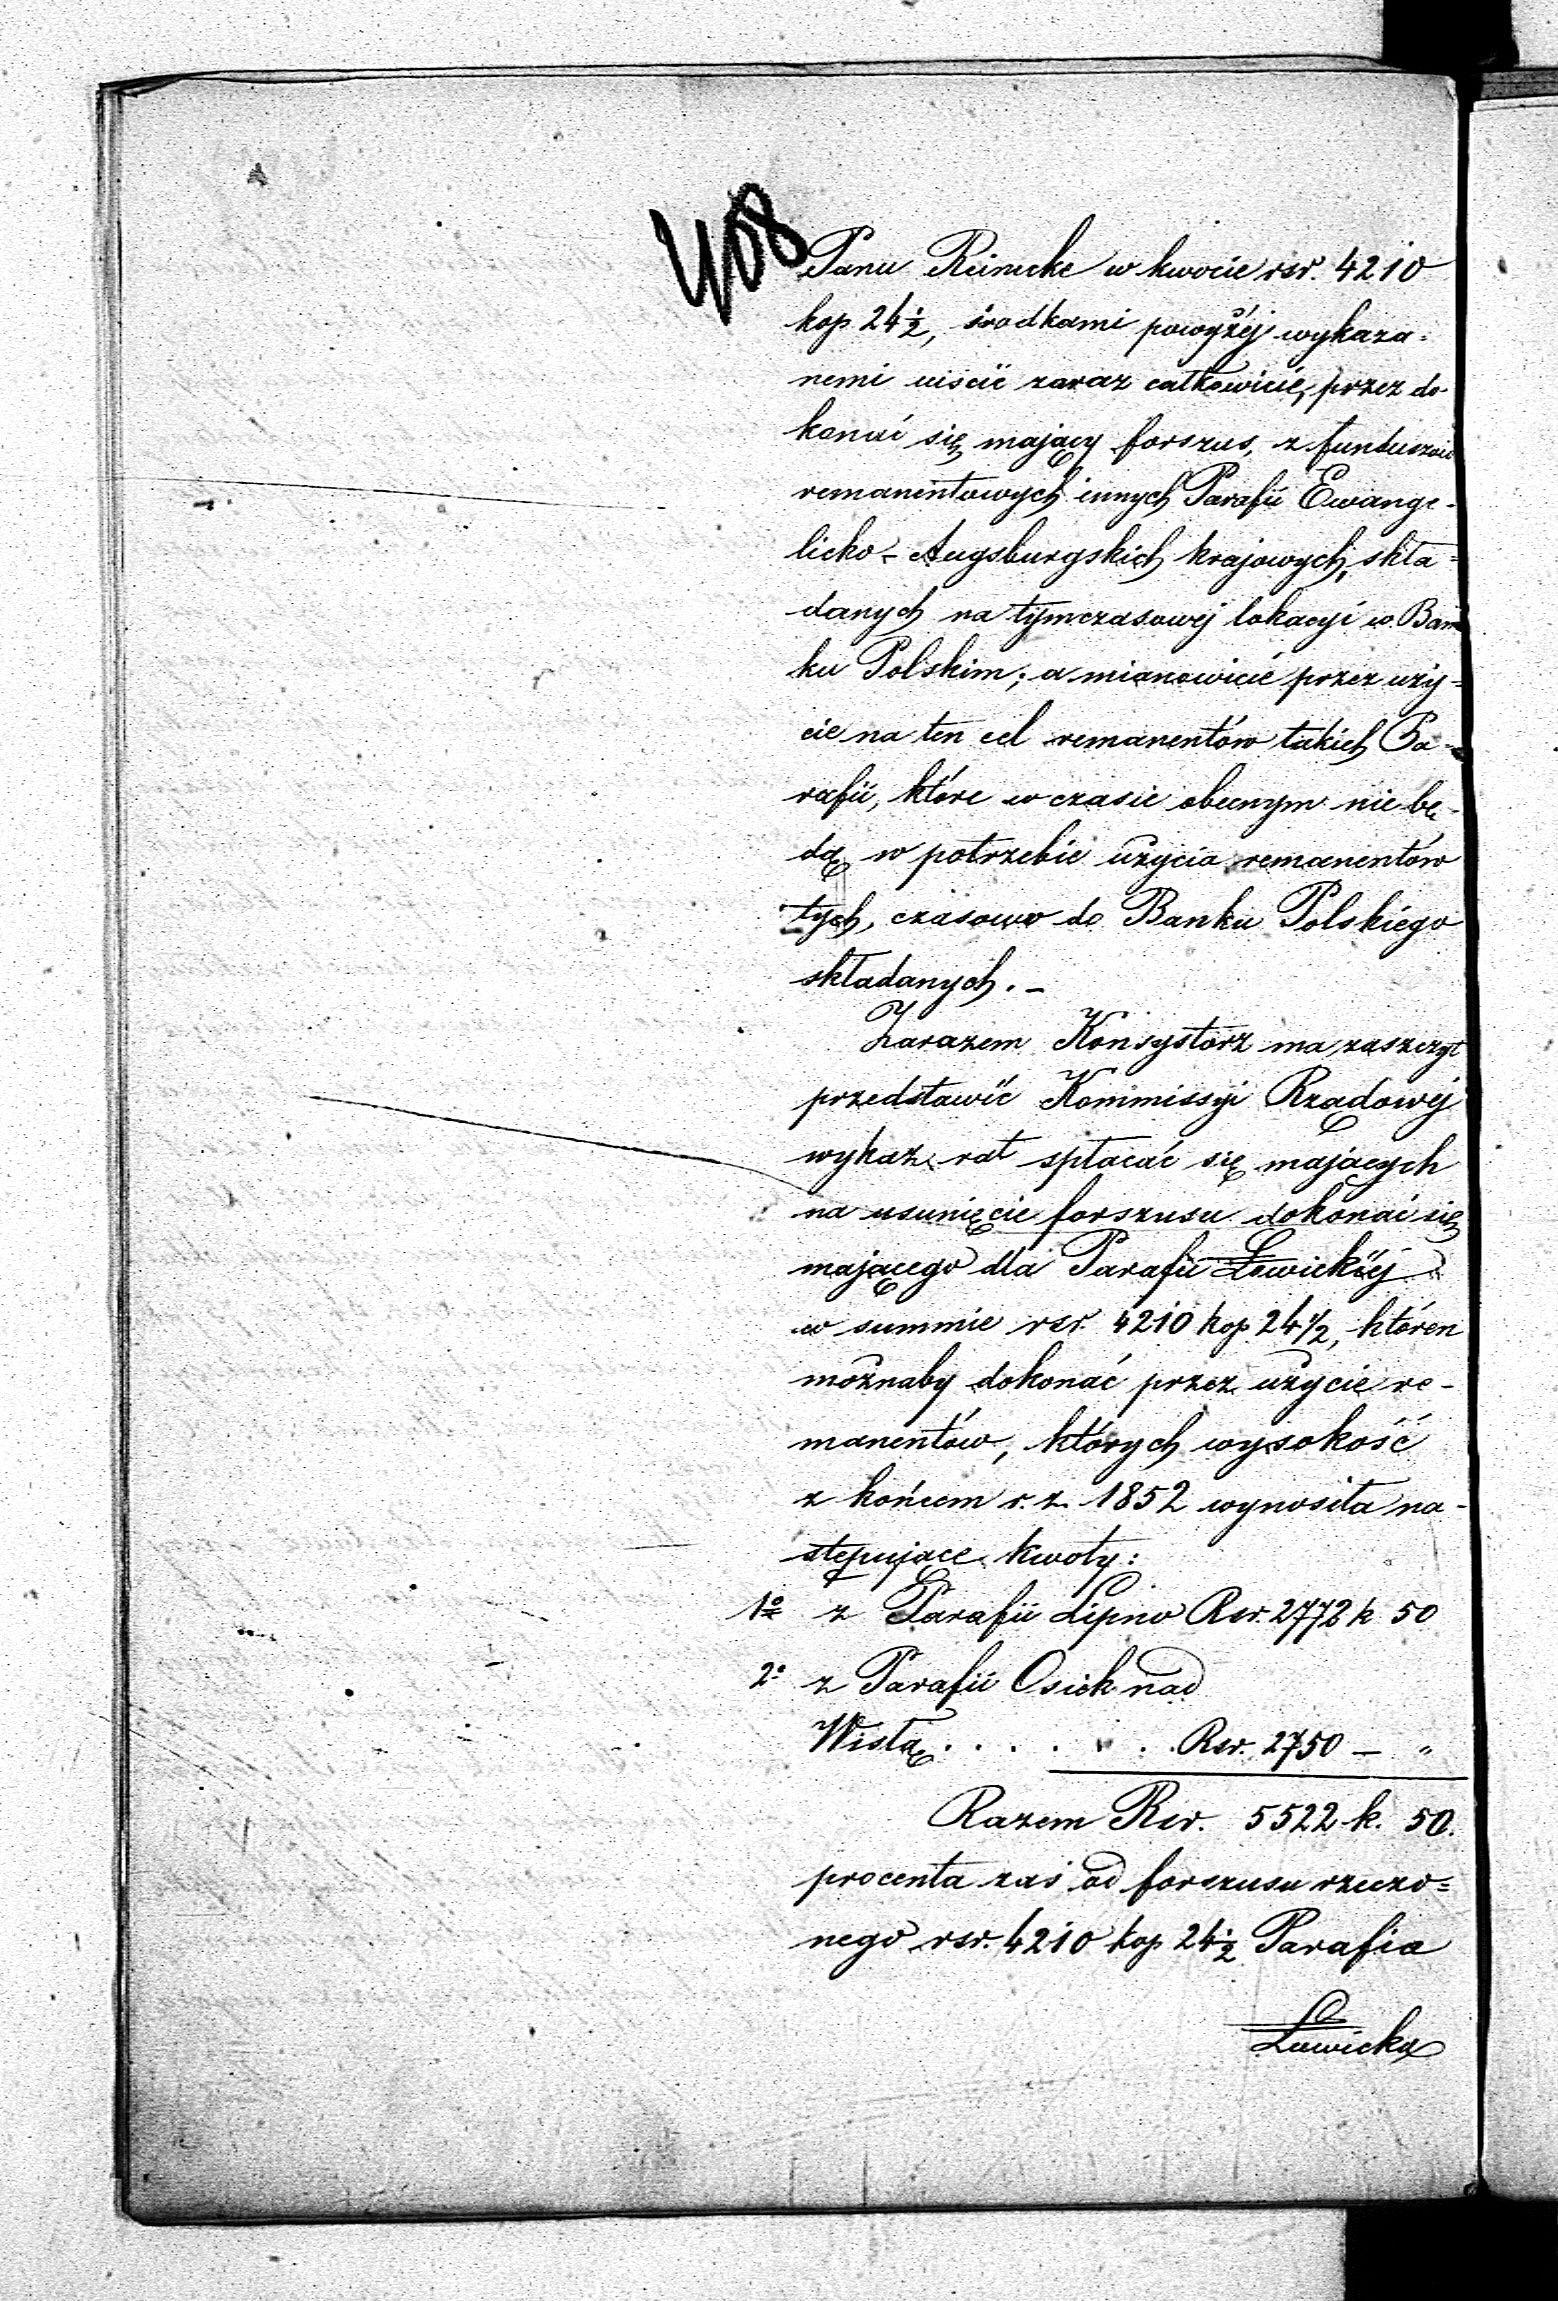 408
Panu Reinecke w kwocie rsr. 4210
kop 24½, środkami powyżéj wykaza-
nemi uiścić zaraz całkowicie, przez do
konać się mający forszus, z funduszów
remanentowych innych Parafii Ewange-
licko-Augsburgskich krajowych, skła-
danych na tymczasowéj lokacyi w Ban
ku Polskim; a mianowicie przez uży-
cie na ten cel remanentów takich Pa-
rafii, które w czasie obecnym nie bę-
dą w potrzebie użycia remanentów
tych, czasowo do Banku Polskiego
składanych. -
Zarazem Konsystorz ma zaszczyt
przedstawić Kommissyi Rządowéj
wykaz rat spłacać się mających
na usunięcie forszusu dokonać się
mającego dla Parafii Łowickiéj
w summie rsr. 4210 kop 24½, któren
możnaby dokonać przez użycie re-
manentów, których wysokość
z końcem r. z. 1852 wynosiła na-
stępujące kwoty:
1º z Parafii Lipno Rsr. 2772 k 50
2º z Parafii Osiek nad
Wisłą . . . . . . . Rsr. 2750 — "
Razem Rsr. 5522 k. 50.
procenta zaś od forszusu rzeczo-
nego rsr. 4210 kop 24½ Parafia
Łowicka